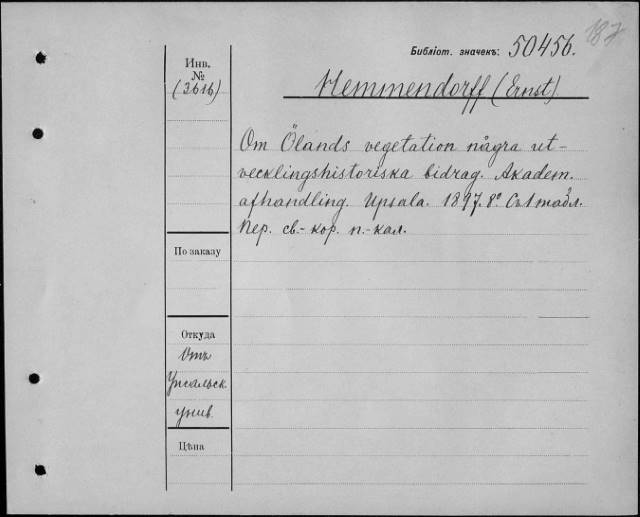 187
Библіот. значекъ: 50456.
Инв.
№
(3616)
Hemmendorff (Ernst)
Om Ölands vegetation några ut-
vecklingshistoriska bidrag. Akadem.
afhandling. Upsala. 1897. 8º. Съ 1 табл.
Пер. св.-кор. п.-кал.
По заказу
Откуда
Отъ
Упсальск.
унив.
Цѣна